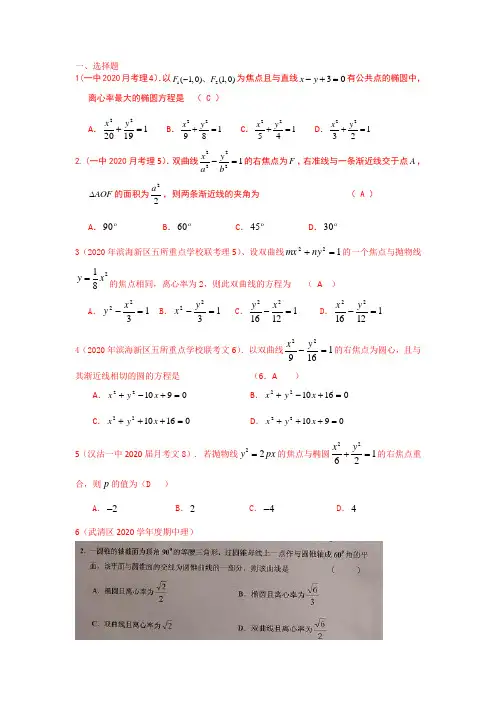 一、选择题
1(一中2020月考理4).以F₁(-1,0)、F₂(1,0)为焦点且与直线x-y+3=0有公共点的椭圆中,
离心率最大的椭圆方程是 ( C )
A. x²/20+y²/19=1 B. x²/9+y²/8=1 C. x²/5+y²/4=1 D. x²/3+y²/2=1
2.(一中2020月考理5).双曲线x²/a²-y²/b²=1的右焦点为F,右准线与一条渐近线交于点A,
ΔAOF的面积为a²/2,则两条渐近线的夹角为 ( A )
A.90º B.60º C.45º D.30º
3(2020年滨海新区五所重点学校联考理5).设双曲线mx²+ny²=1的一个焦点与抛物线
y=1/8x²的焦点相同,离心率为2,则此双曲线的方程为 ( A )
A. y²-x²/3=1 B. x²-y²/3=1 C. y²/16-x²/12=1 D. x²/16-y²/12=1
4(2020年滨海新区五所重点学校联考文6).以双曲线x²/9-y²/16=1的右焦点为圆心,且与
其渐近线相切的圆的方程是 (6.A )
A.x²+y²-10x+9=0 B.x²+y²-10x+16=0
C.x²+y²+10x+16=0 D.x²+y²+10x+9=0
5(汉沽一中2020届月考文8).若抛物线y²=2px的焦点与椭圆x²/6+y²/2=1的右焦点重
合,则p的值为(D )
A.-2 B.2 C.-4 D.4
6(武清区2020学年度期中理)
2.一圆锥的轴截面为顶角90⁰的等腰三角形,过圆锥母线上一点作与圆锥轴成60⁰角的平
面,该平面与圆锥面的交线为圆锥曲线的一部分,则该曲线是 ( )
A.椭圆且离心率为√2/2 B.椭圆且离心率为√6/3
C.双曲线且离心率为√2 D.双曲线且离心率为√6/2